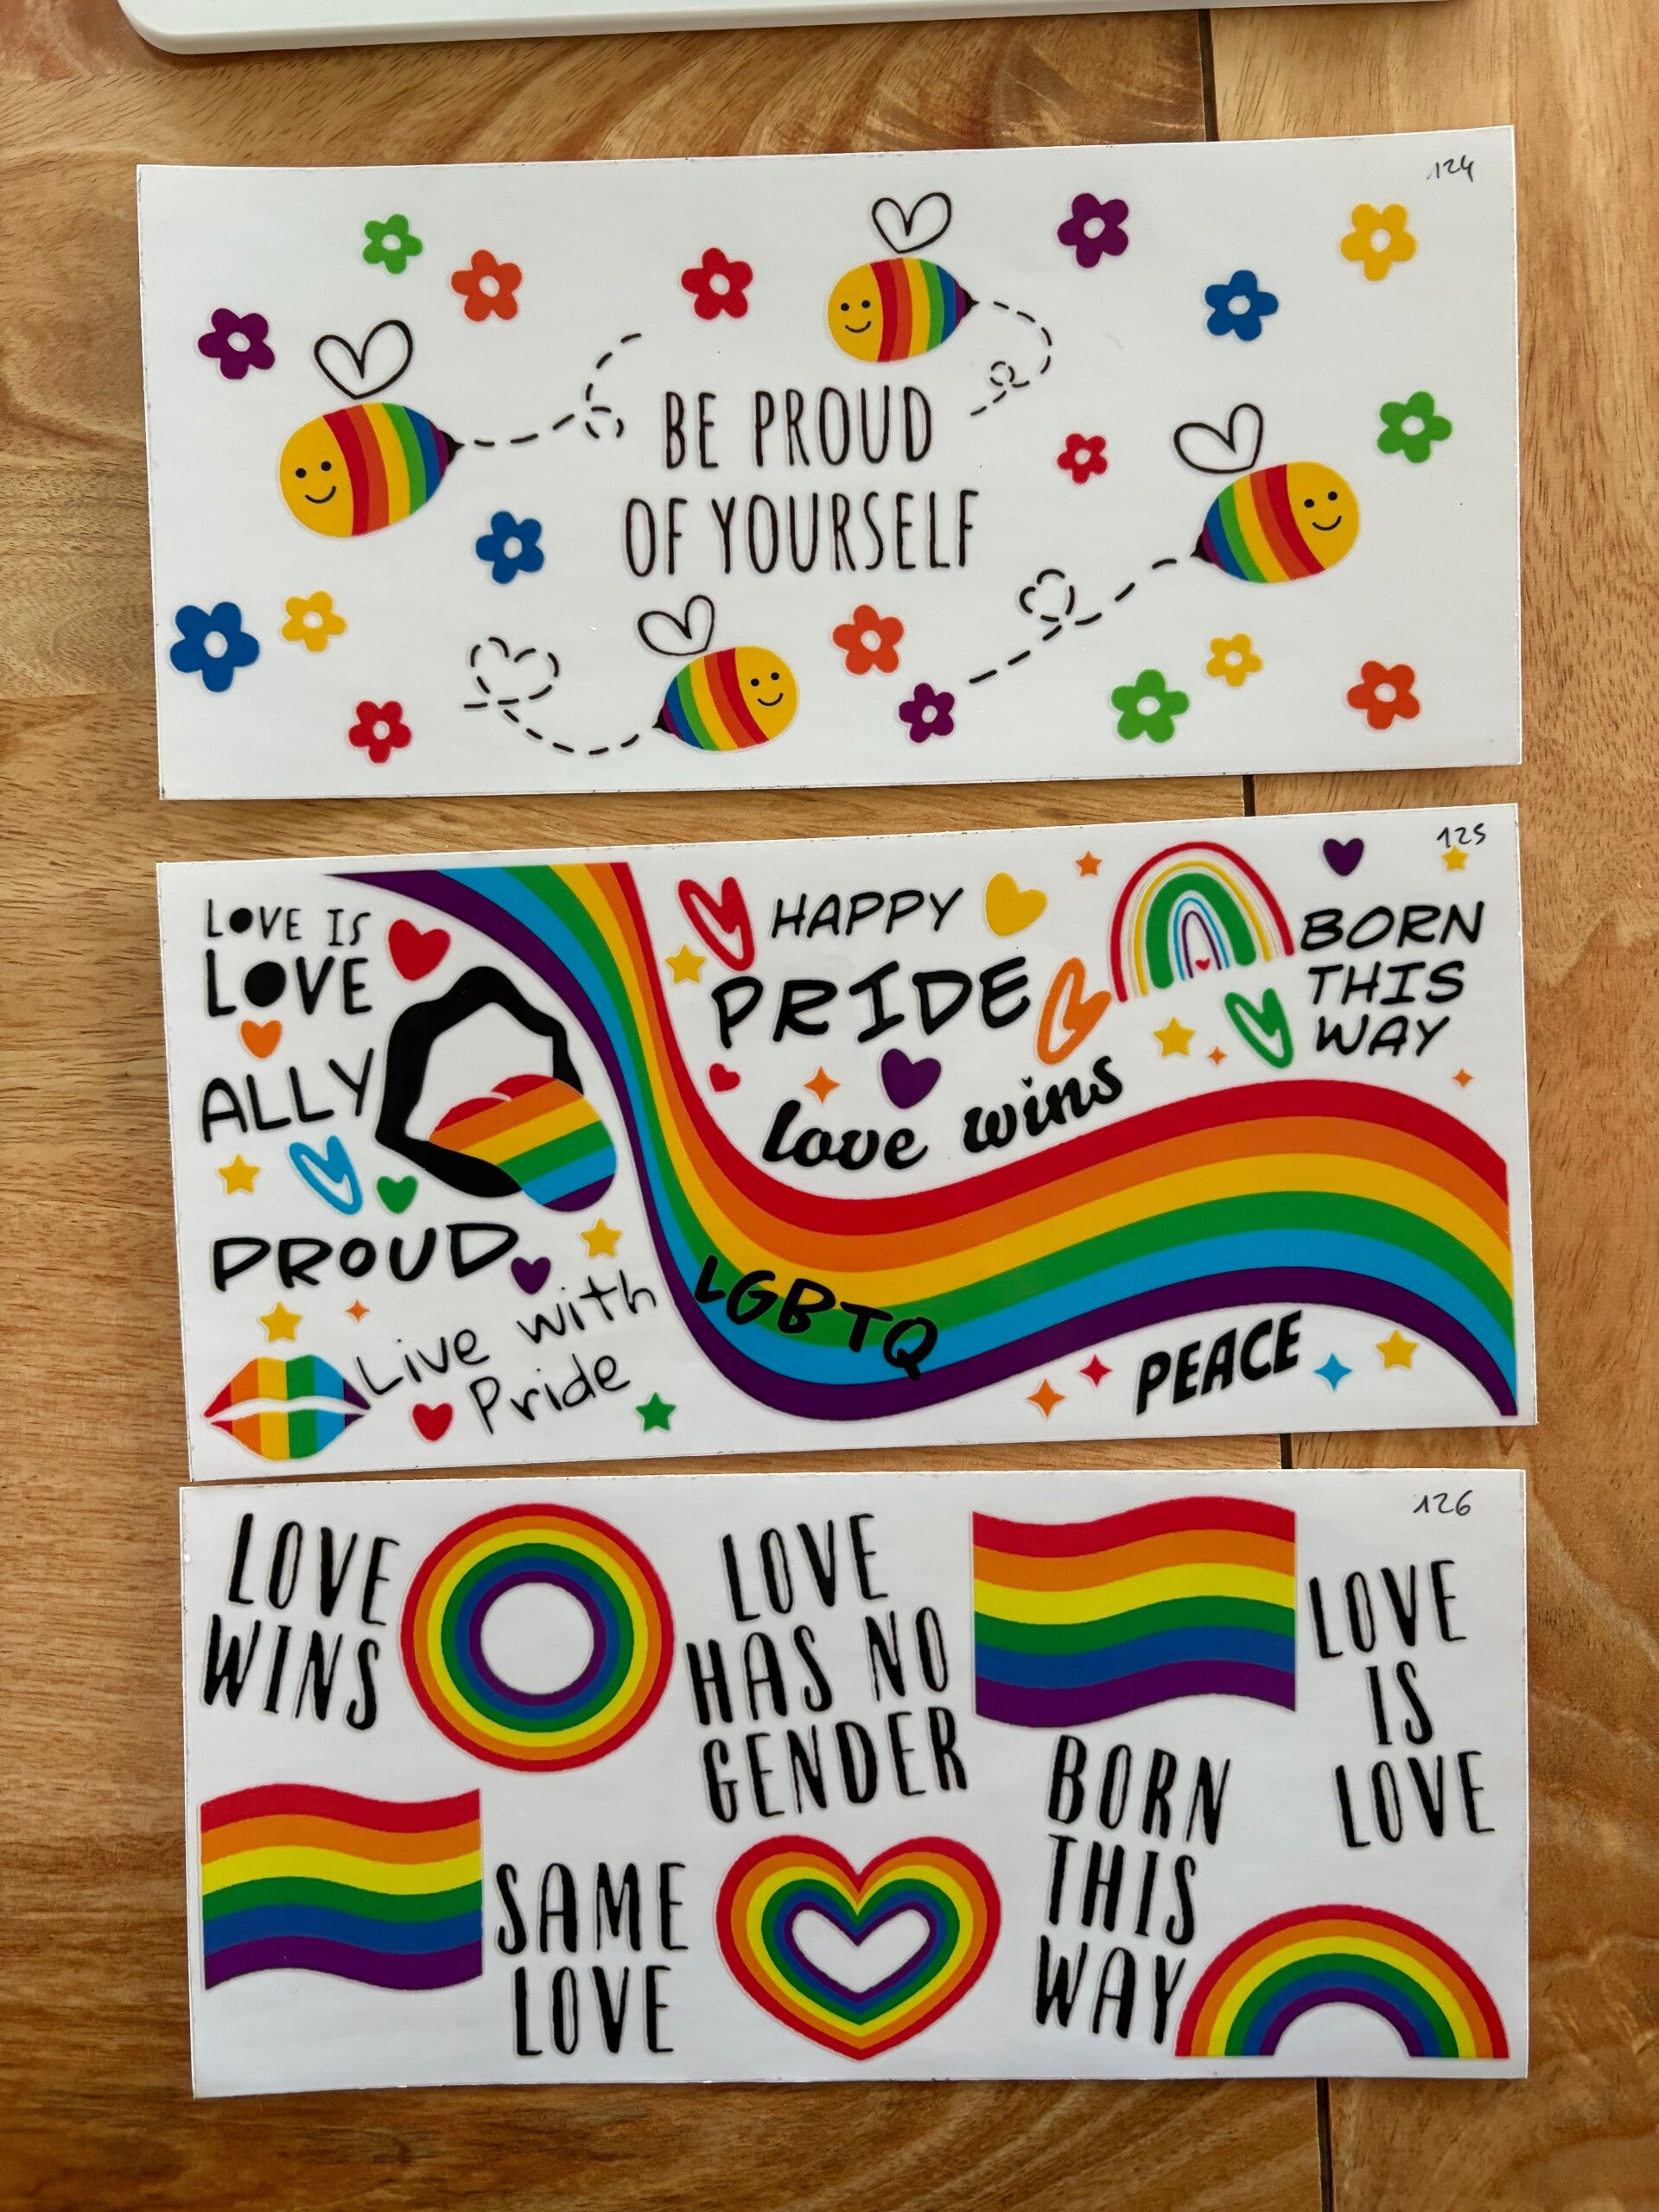 124
BE PROUD
OF YOURSELF
125
LOVE IS
LOVE
ALLY
PROUD
Live with
Pride
HAPPY
PRIDE
love wins
BORN
THIS
WAY
LGBTQ
PEACE
126
LOVE
WINS
LOVE
HAS NO
GENDER
LOVE
IS
LOVE
SAME
LOVE
BORN
THIS
WAY